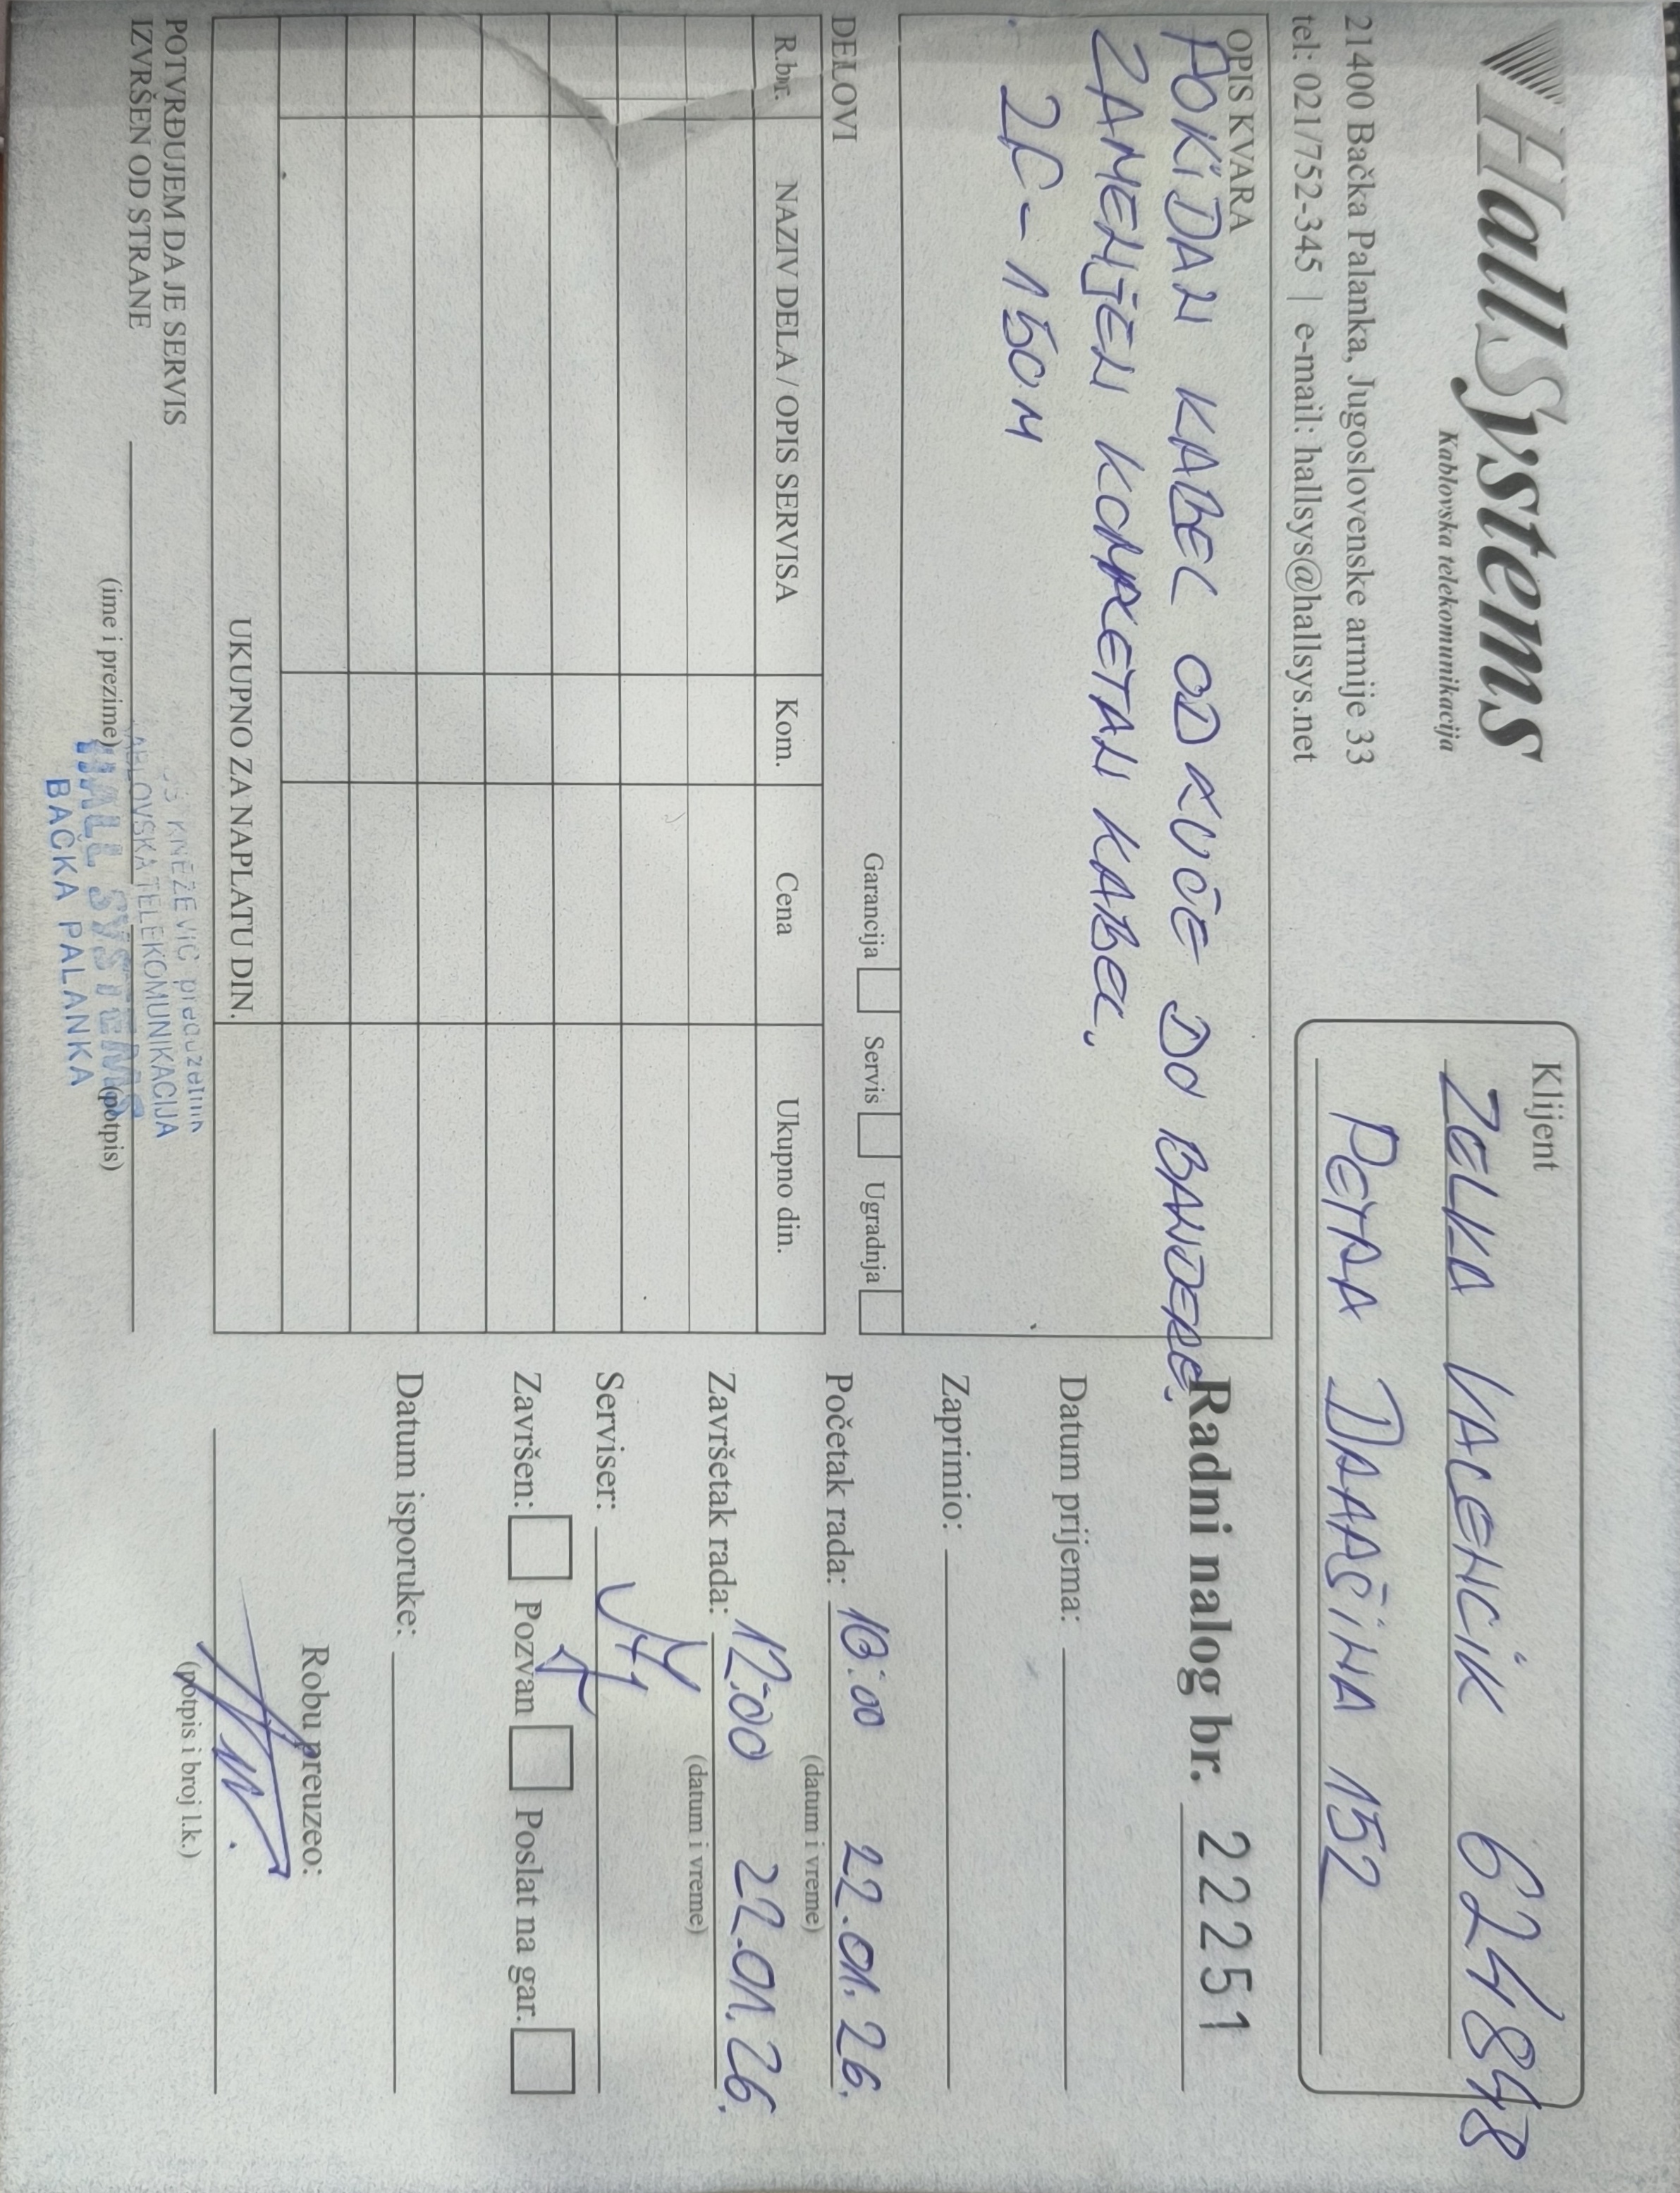 HallSystems
Kablovska telekomunikacija
21400 Bačka Palanka, Jugoslovenske armije 33
tel: 021/752-345 | e-mail: hallsys@hallsys.net
Klijent
ZELKA VALENCIK 624848
PETRA DRAPŠINA 152
OPIS KVARA
POKIDAN KABEL OD KUĆE DO BANDERE.
ZAMENJEN KOMPLETAN KABEL.
2C - 150M
Garancija Servis Ugradnja
DELOVI
R.br. NAZIV DELA / OPIS SERVISA Kom. Cena Ukupno din.
UKUPNO ZA NAPLATU DIN.
POTVRĐUJEM DA JE SERVIS
IZVRŠEN OD STRANE
(ime i prezime) (potpis)
KNEŽEVIĆ preduzetnik
KABLOVSKA TELEKOMUNIKACIJA
HALL SYSTEMS
BAČKA PALANKA
Radni nalog br. 22251
Datum prijema:
Zaprimio:
Početak rada: 10:00 22.01.26.
(datum i vreme)
Završetak rada: 12:00 22.01.26.
(datum i vreme)
Serviser:
Završen: Pozvan Poslat na gar.
Datum isporuke:
Robu preuzeo:
(potpis i broj l.k.)